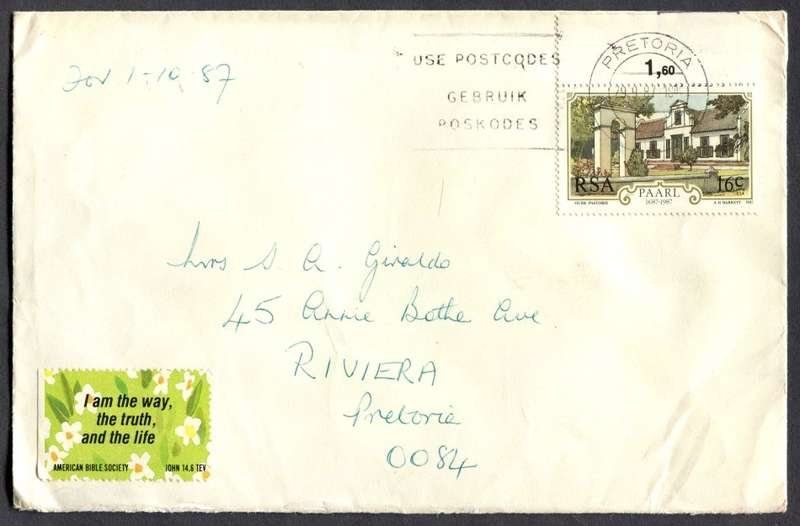 For 1-10-87
USE POSTCODES
GEBRUIK
POSKODES
PRETORIA
1,60
RSA
16c
PAARL
1687-1987
Mrs S. A. Giraldo
45 Annie Botha Ave.
RIVIERA
Pretoria
0084
I am the way,
the truth,
and the life
AMERICAN BIBLE SOCIETY JOHN 14.6 TEV